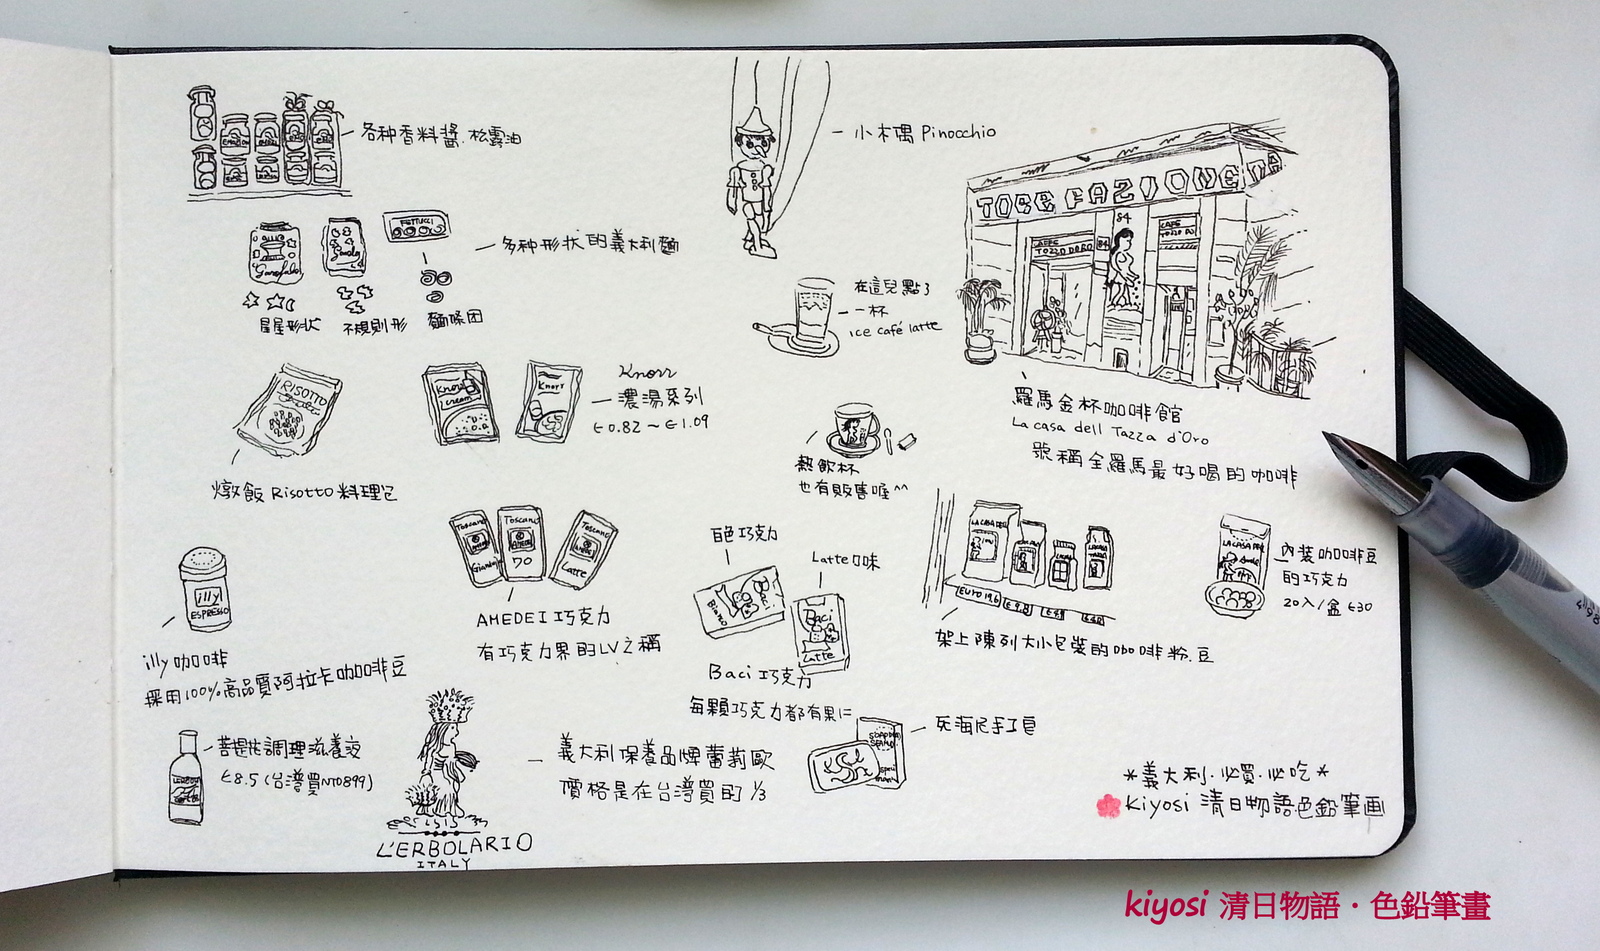 各种香料醬.松露油
多种形状的義大利麵
Garofalo
FETTUCCI
星星形状
不規則形
麵條团
RISOTTO
燉飯 Risotto 料理包
Knorr
cream
Knorr
Knorr
濃湯系列
€0.82～€1.09
illy
ESPRESSO
illy 咖啡
採用100%高品質阿拉卡咖啡豆
Toscano
Toscano
70
Toscano
Latte
AMEDEI 巧克力
有巧克力界的LV之稱
菩提花調理滋養液
€8.5 (台灣買NT0899)
L'ERBOLARIO
ITALY
義大利保養品牌蕾莉歐
價格是在台灣買的 1/3
小木偶 Pinocchio
在這兒點了
一杯
ice café latte
熱飲杯
也有販售喔^^
TORR FAZIONE
84
CAFFE
TAZZO DORO
84
羅馬金杯咖啡館
La casa dell Tazza d'Oro
號稱全羅馬最好喝的咖啡
白色巧克力
Latte口味
Bianco
Baci
Baci
Latte
Baci 巧克力
每顆巧克力都有果仁
死海泥手工皂
LA CASA DEL
架上陳列大小包裝的咖啡粉.豆
LA CASA DEL
內裝咖啡豆
的巧克力
20入/盒 €30
*義大利.必買.必吃*
Kiyosi 清日物語色鉛筆画
kiyosi 清日物語・色鉛筆畫